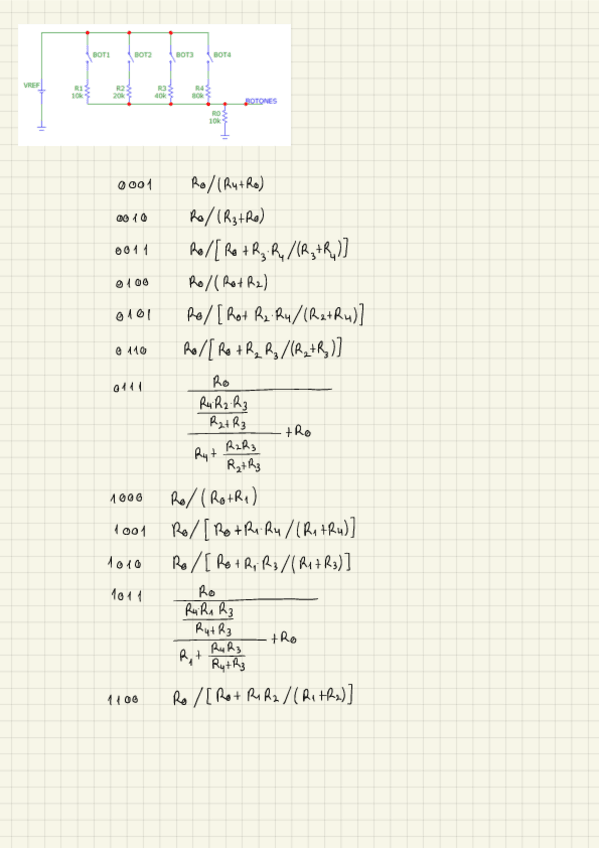 BOT1 BOT2 BOT3 BOT4
VREF
R1 R2 R3 R4
10k 20k 40k 80k
BOTONES
R0
10k
0001 R0/(R4+R0)
0010 R0/(R3+R0)
0011 R0/[R0+R3·R4/(R3+R4)]
0100 R0/(R0+R2)
0101 R0/[R0+R2·R4/(R2+R4)]
0110 R0/[R0+R2R3/(R2+R3)]
0111 R0
R4·R2·R3
R2+R3
+R0
R4+ R2R3
R2+R3
1000 R0/(R0+R1)
1001 R0/[R0+R1·R4/(R1+R4)]
1010 R0/[R0+R1·R3/(R1+R3)]
1011 R0
R4·R1 R3
R4+R3
+R0
R1+ R4R3
R4+R3
1100 R0/[R0+R1R2/(R1+R2)]